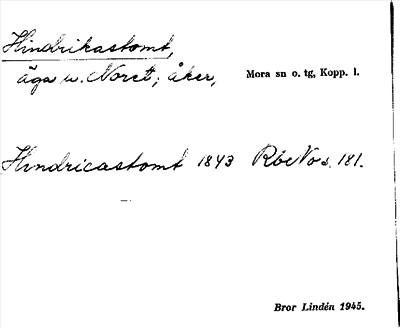 Hindrikastomt,
äga u. Noret; åker, Mora sn o. tg, Kopp. l.
Hindricastomt 1843 RbeNo s. 181.
Bror Lindén 1945.